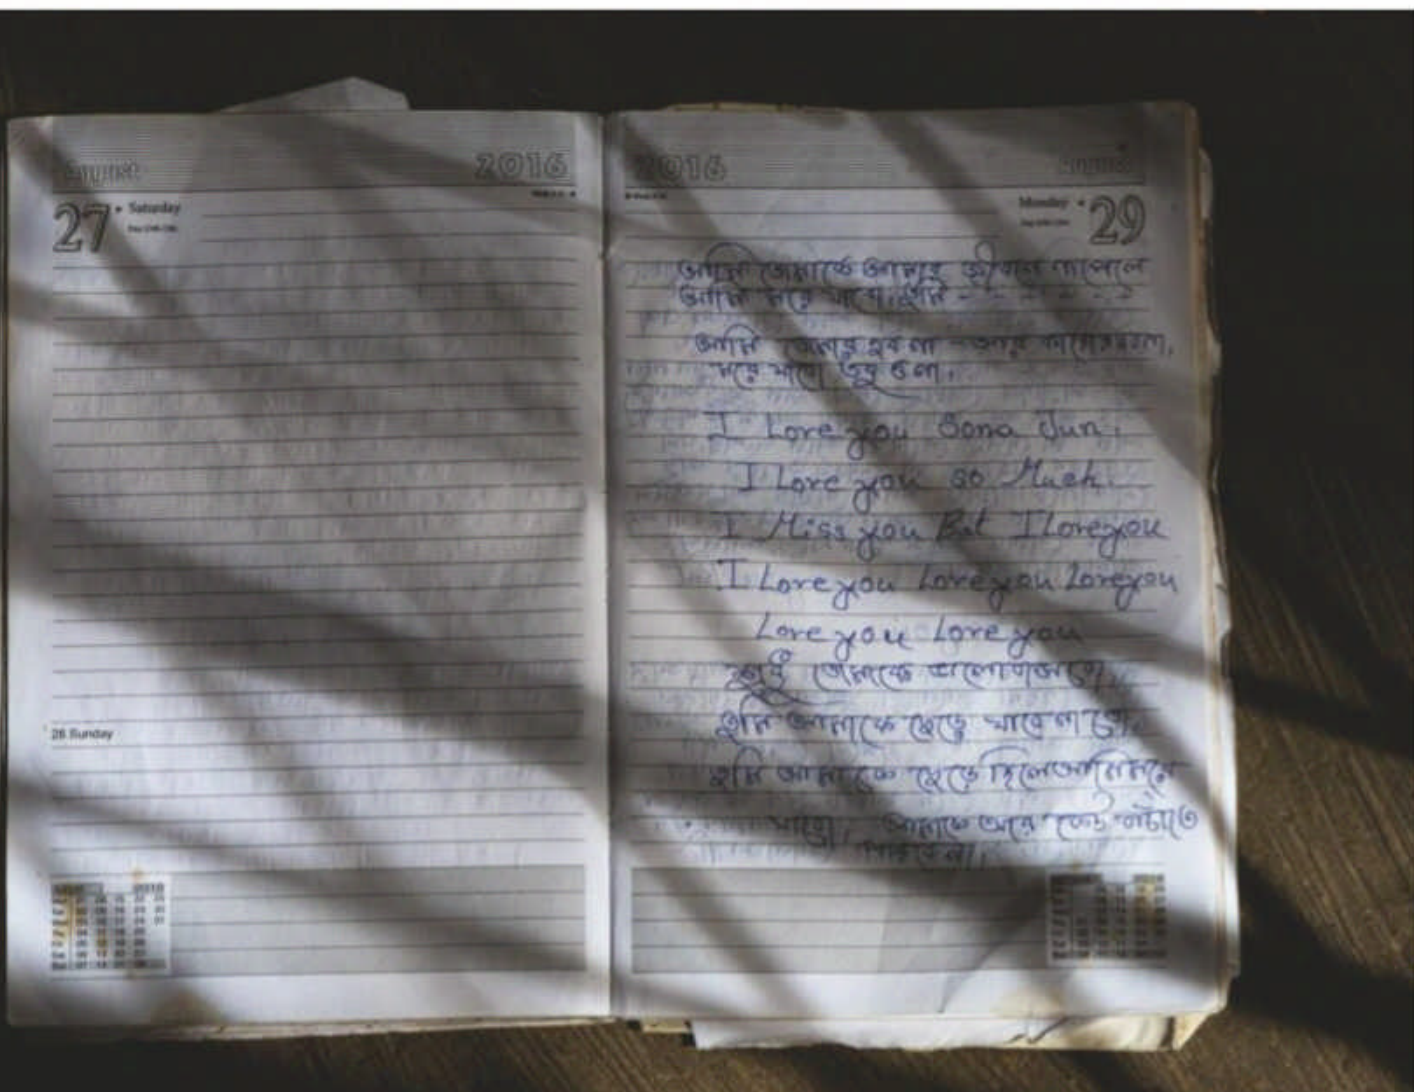 August 2016
27 Saturday
28 Sunday
2016 August
Monday 29
আমি তোমাকে আমার জীবনে না পেলে
আমি মরে যাবো। তুমি - - - - - -
আমি তোমার হব না - আর কারো হবনা,
মরে যাবো তবু ওনা।
I Love you Sona Jun.
I Love you so Much.
I Miss you But I Love you
I Love you Love you Love you
Love you Love you
শুধু তোমাকে ভালোবাসবো,
তুমি আমাকে ছেড়ে যাবে না তো,
তুমি আমাকে ছেড়ে দিলে আমি মরে
যাবো, আমাকে আর কেউ বাঁচাতে
পারবে না।